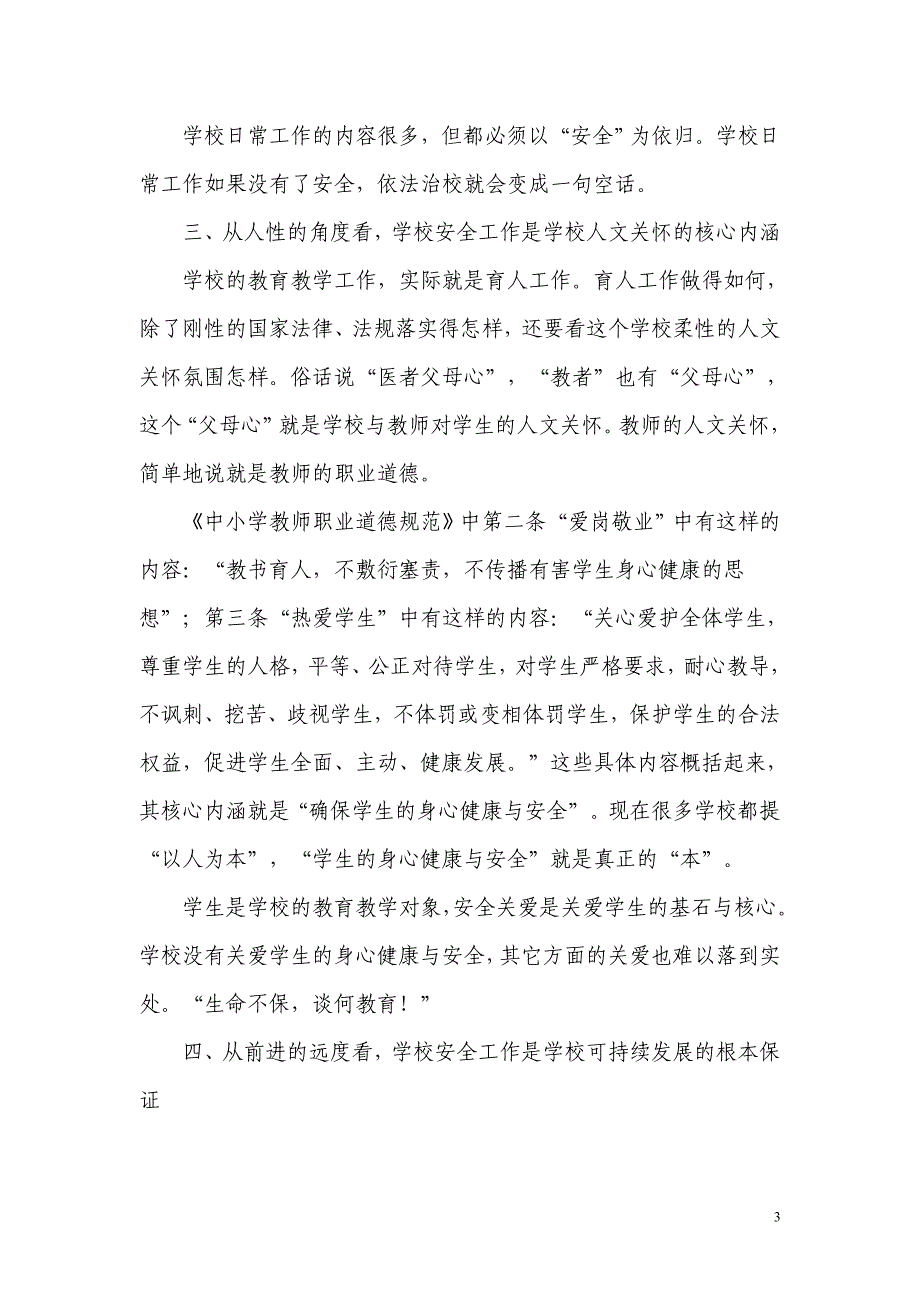 学校日常工作的内容很多，但都必须以“安全”为依归。学校日
常工作如果没有了安全，依法治校就会变成一句空话。
三、从人性的角度看，学校安全工作是学校人文关怀的核心内涵
学校的教育教学工作，实际就是育人工作。育人工作做得如何，
除了刚性的国家法律、法规落实得怎样，还要看这个学校柔性的人文
关怀氛围怎样。俗话说“医者父母心”，“教者”也有“父母心”，
这个“父母心”就是学校与教师对学生的人文关怀。教师的人文关怀，
简单地说就是教师的职业道德。
《中小学教师职业道德规范》中第二条“爱岗敬业”中有这样的
内容：“教书育人，不敷衍塞责，不传播有害学生身心健康的思
想”；第三条“热爱学生”中有这样的内容：“关心爱护全体学生，
尊重学生的人格，平等、公正对待学生，对学生严格要求，耐心教导，
不讽刺、挖苦、歧视学生，不体罚或变相体罚学生，保护学生的合法
权益，促进学生全面、主动、健康发展。”这些具体内容概括起来，
其核心内涵就是“确保学生的身心健康与安全”。现在很多学校都提
“以人为本”，“学生的身心健康与安全”就是真正的“本”。
学生是学校的教育教学对象，安全关爱是关爱学生的基石与核心。
学校没有关爱学生的身心健康与安全，其它方面的关爱也难以落到实
处。“生命不保，谈何教育！”
四、从前进的远度看，学校安全工作是学校可持续发展的根本保
证
3